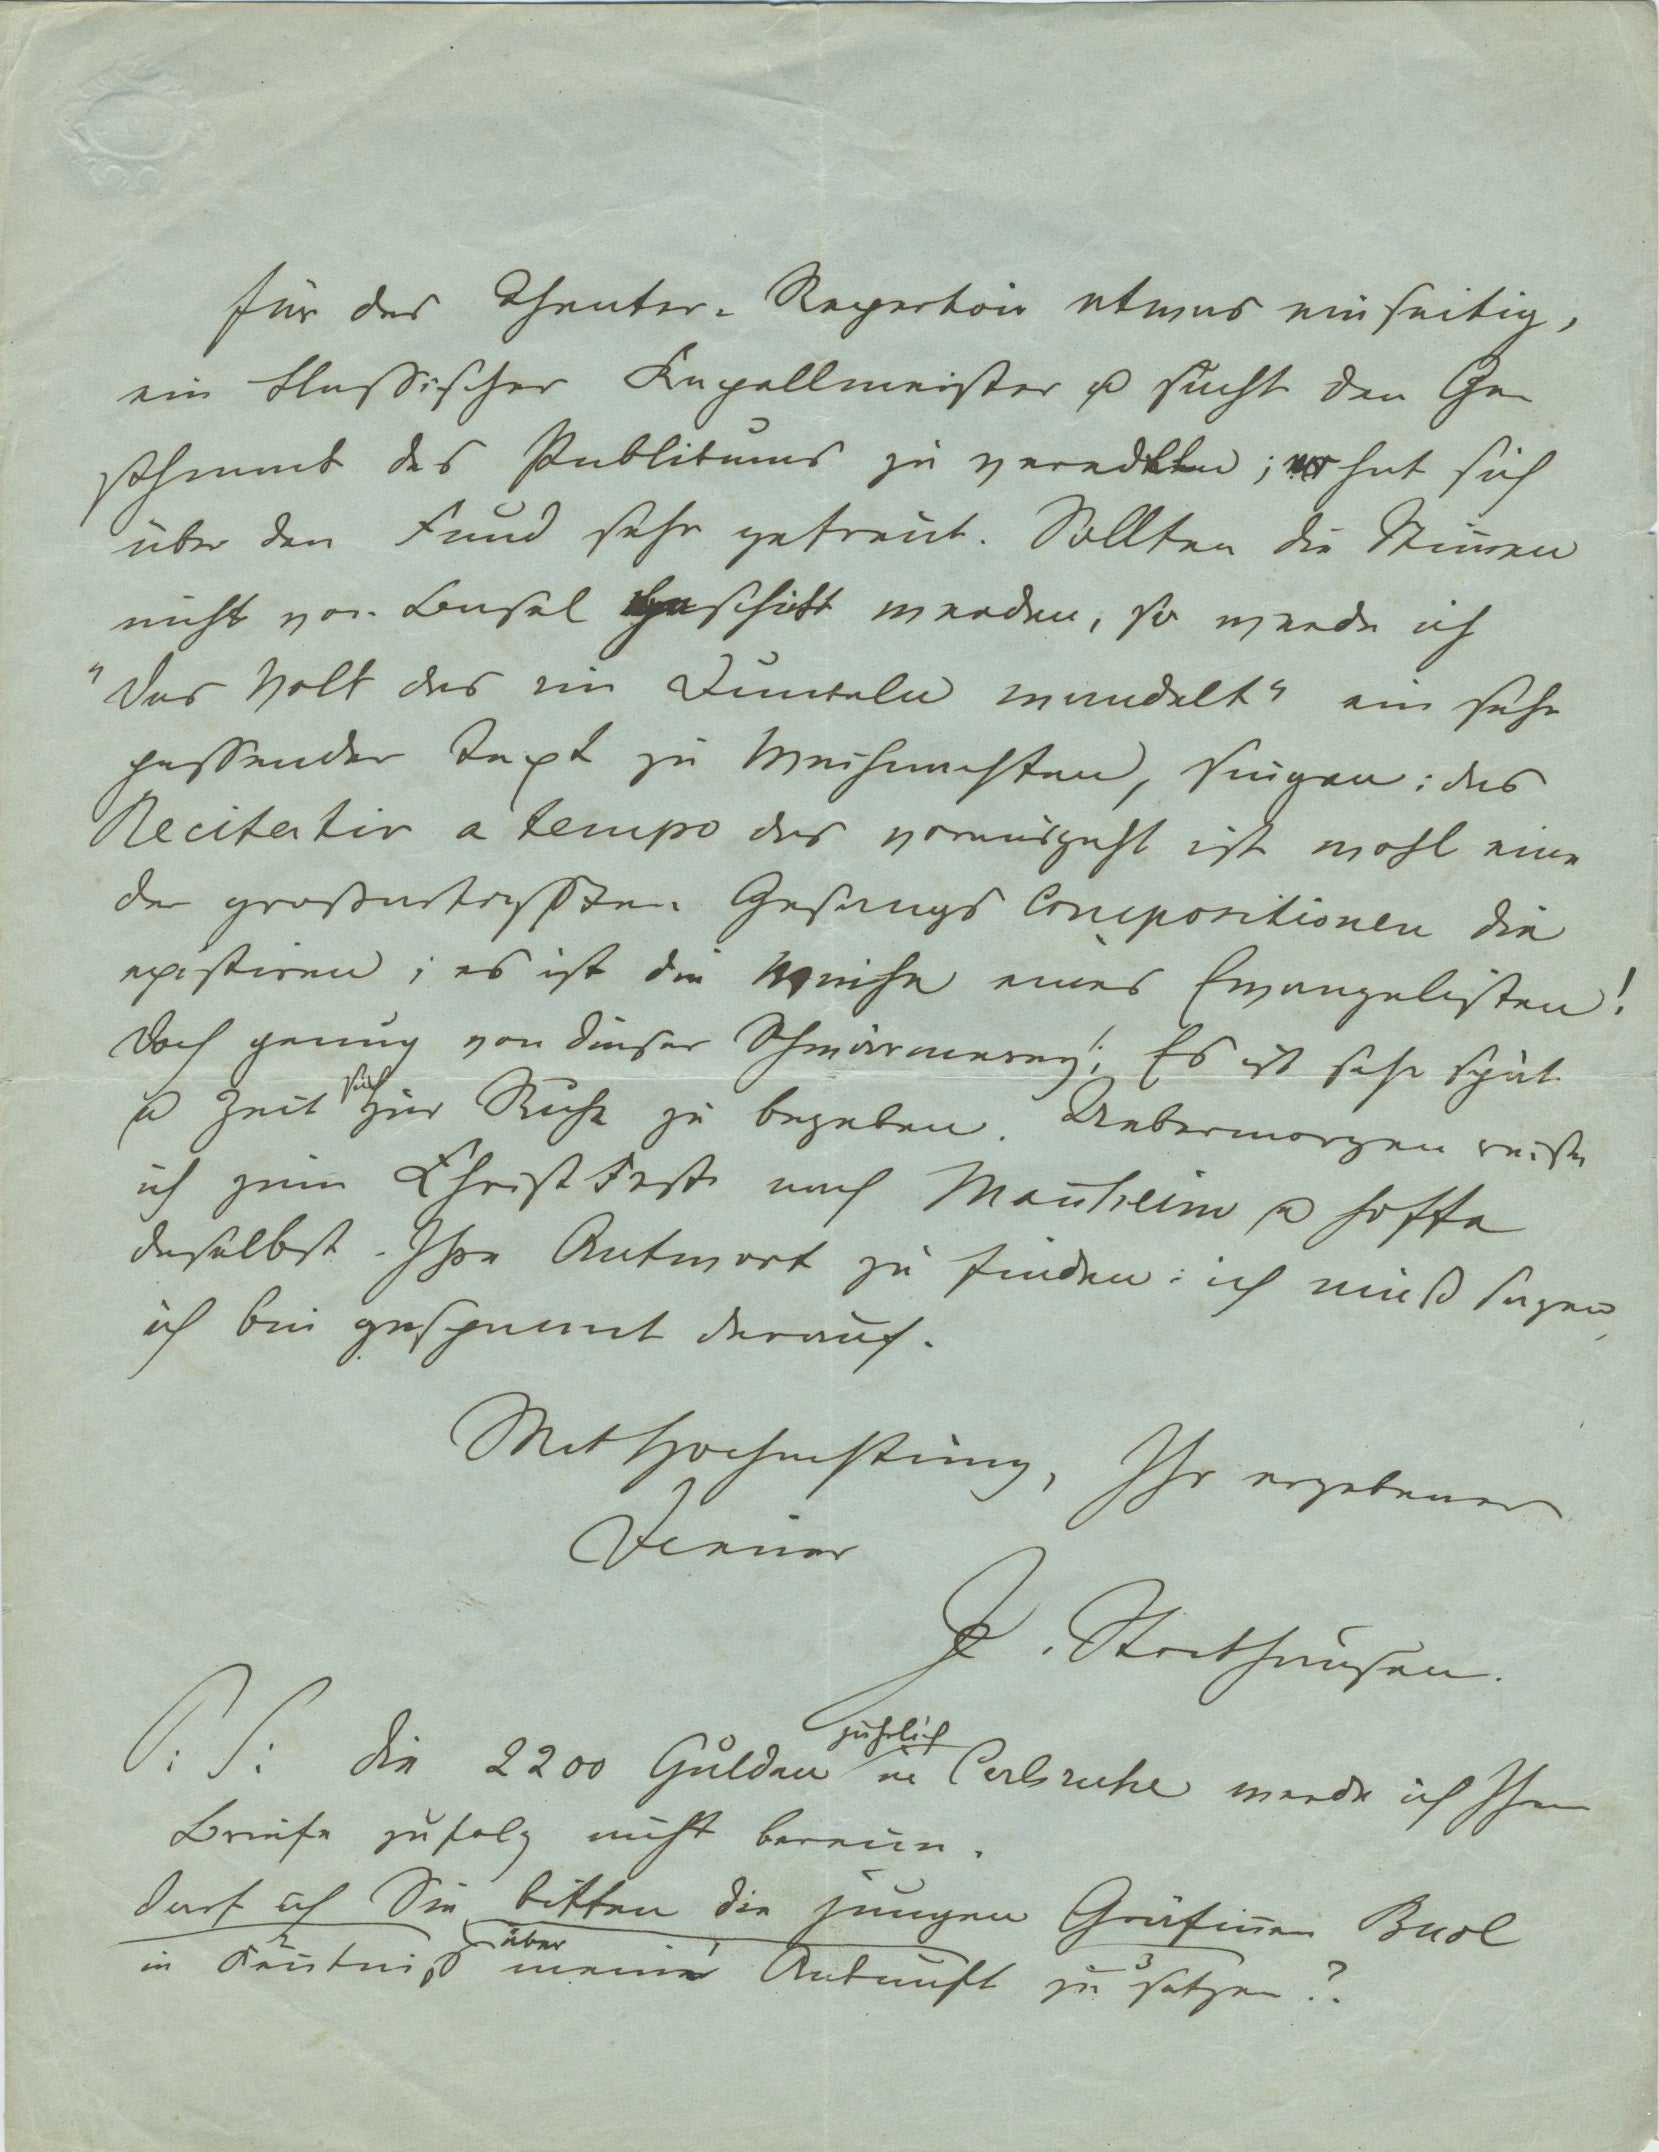 für das Theater-Repertoir etwas einseitig,
ein klassischer Kapellmeister u sucht den Ge
schmack des Publikums zu veredlen; er hat sich
über den Fund sehr gefreut. Sollten die Stim̄en
nicht von Basel geschickt werden, so werde ich
"Das Volk das im Dunkeln wandelt" ein sehr
passender Text zu Weihnachten, singen: das
Recitativ a tempo das vorausgeht ist wohl eine
der großartigsten Gesangs Compositionen die
existiren; es ist die Weihe eines Evangelisten!
Doch genug von dieser Schwärmerey! Es ist sehr spät
u Zeit sich zur Ruhe zu begeben. Uebermorgen reise
ich zum Christfeste nach Man̄heim u hoffe
daselbst Ihre Antwort zu finden: ich muß sagen
ich bin gespannt darauf.
Mit Hochachtung, Ihr ergebener
Diener
J. Stockhausen.
P: S: die 2200 Gulden jährlich in Carlsruhe werde ich Ihrem
Briefe zufolg nicht bereun.
Darf ich Sie bitten die jungen Gräfin̄en Buol
in Ken̄tniß über meine Ankunft zu setzen?